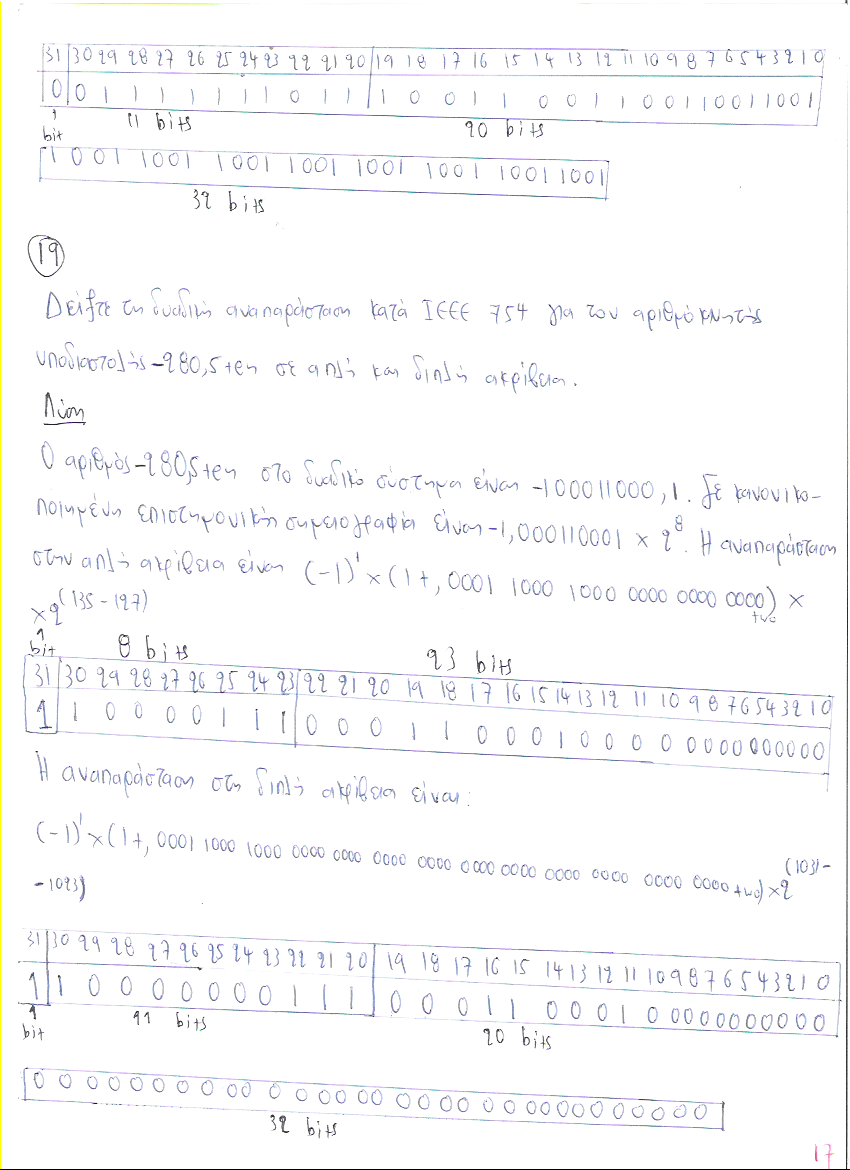 31 30 29 28 27 26 25 24 23 22 21 20 19 18 17 16 15 14 13 12 11 10 9 8 7 6 5 4 3 2 1 0
0 0 1 1 1 1 1 1 1 0 1 1 1 0 0 1 1 0 0 1 1 0 0 1 1 0 0 1 1 0 0 1
1 bit 11 bits 20 bits
1001 1001 1001 1001 1001 1001 1001 1001
32 bits
19
Δείξτε τη δυαδική αναπαράσταση κατά IEEE 754 για τον αριθμό κινητής
υποδιαστολής -280,5 ten σε απλή και διπλή ακρίβεια.
Λύση
Ο αριθμός -280,5 ten στο δυαδικό σύστημα είναι -100011000,1. Σε κανονικο-
ποιημένη επιστημονική σημειογραφία είναι -1,000110001 × 2^8. Η αναπαράσταση
στην απλή ακρίβεια είναι (-1)^1 × (1+,0001 1000 1000 0000 0000 0000)two ×
×2^(135-127)
1 bit 8 bits 23 bits
31 30 29 28 27 26 25 24 23 22 21 20 19 18 17 16 15 14 13 12 11 10 9 8 7 6 5 4 3 2 1 0
1 1 0 0 0 0 1 1 1 0 0 0 1 1 0 0 0 1 0 0 0 0 0 0 0 0 0 0 0 0 0 0
Η αναπαράσταση στη διπλή ακρίβεια είναι:
(-1)^1 × (1+,0001 1000 1000 0000 0000 0000 0000 0000 0000 0000 0000 0000 0000 two) × 2^(1031-
-1023)
31 30 29 28 27 26 25 24 23 22 21 20 19 18 17 16 15 14 13 12 11 10 9 8 7 6 5 4 3 2 1 0
1 1 0 0 0 0 0 0 0 1 1 1 0 0 0 1 1 0 0 0 1 0 0 0 0 0 0 0 0 0 0 0
1 bit 11 bits 20 bits
0 0 0 0 0 0 0 0 0 0 0 0 0 0 0 0 0 0 0 0 0 0 0 0 0 0 0 0 0 0 0 0
32 bits
17